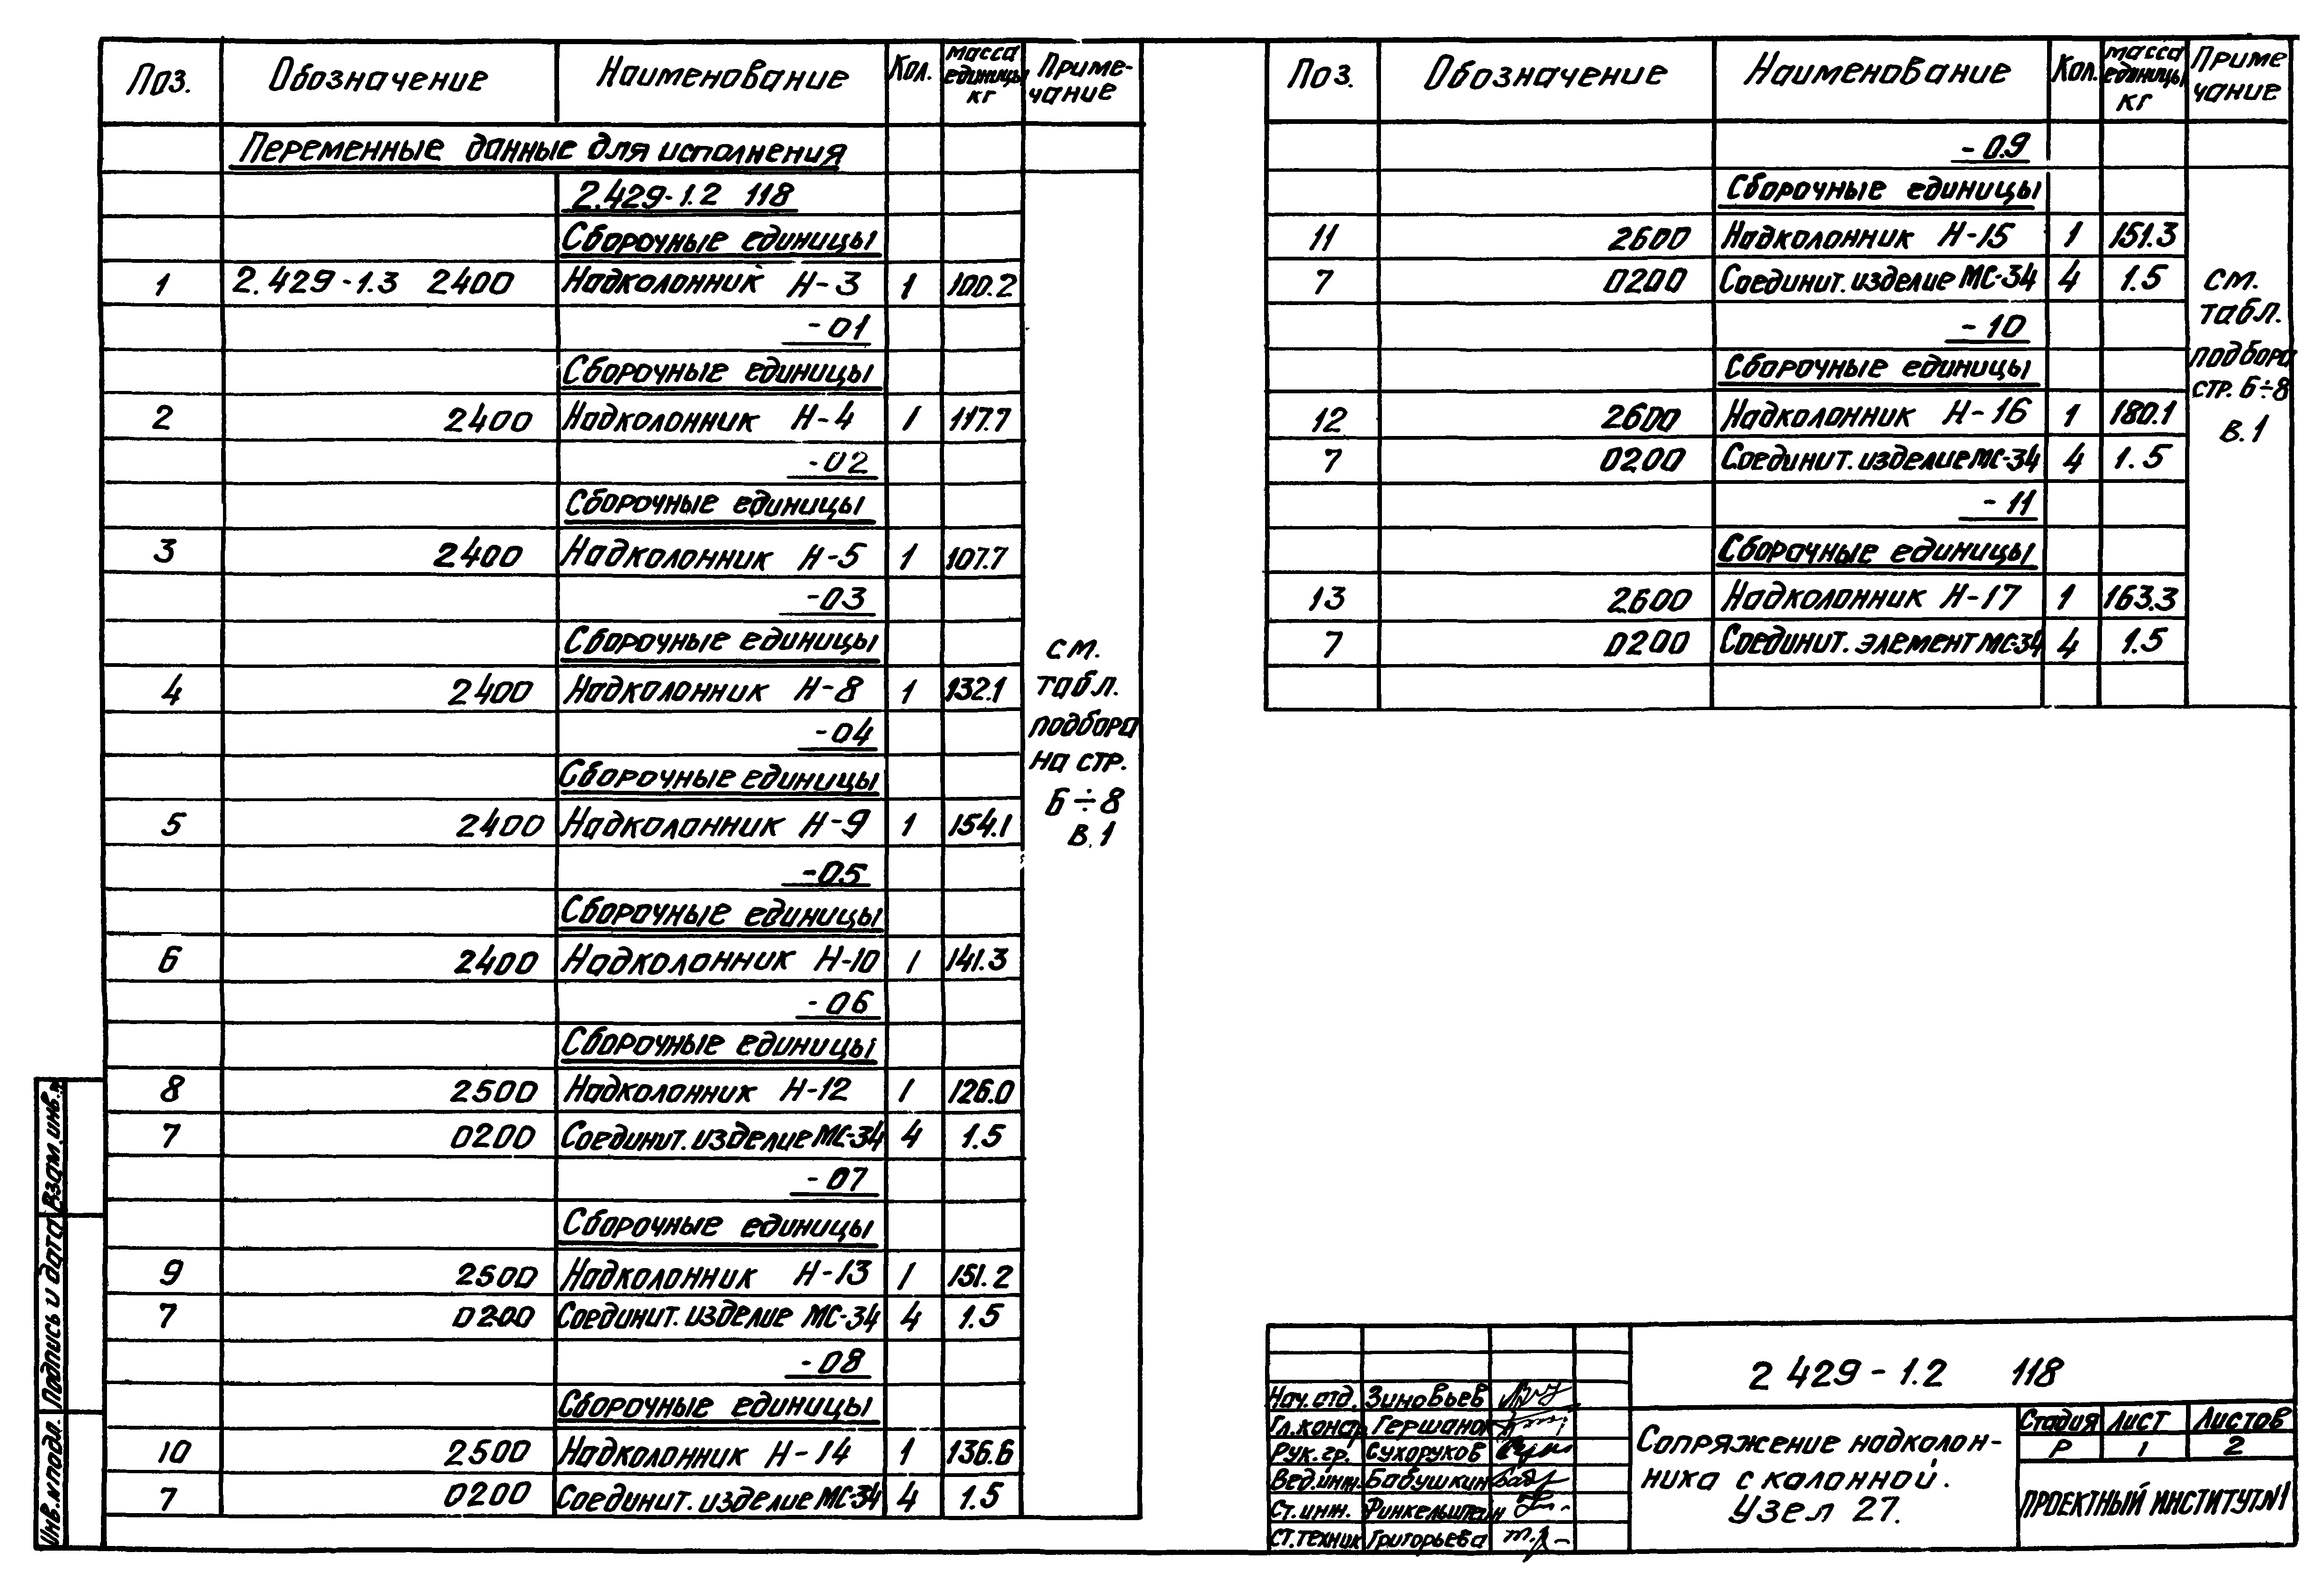 Поз. Обозначение Наименование Кол. масса единицы кг Приме-чание
Переменные данные для исполнения
2.429-1.2 118
Сборочные единицы
1 2.429-1.3 2400 Надколонник Н-3 1 100.2
-01
Сборочные единицы
2 2400 Надколонник Н-4 1 117.7
-02
Сборочные единицы
3 2400 Надколонник Н-5 1 107.7
-03
Сборочные единицы
4 2400 Надколонник Н-8 1 132.1
-04
Сборочные единицы
5 2400 Надколонник Н-9 1 154.1
-05
Сборочные единицы
6 2400 Надколонник Н-10 1 141.3
-06
Сборочные единицы
8 2500 Надколонник Н-12 1 126.0
7 0200 Соединит. изделие МС-34 4 1.5
-07
Сборочные единицы
9 2500 Надколонник Н-13 1 151.2
7 0200 Соединит. изделие МС-34 4 1.5
-08
Сборочные единицы
10 2500 Надколонник Н-14 1 136.6
7 0200 Соединит. изделие МС-34 4 1.5
см.
табл.
подбора
на стр.
6÷8
в.1
Поз. Обозначение Наименование Кол. масса единицы кг Приме чание
-09
Сборочные единицы
11 2600 Надколонник Н-15 1 151.3
7 0200 Соединит. изделие МС-34 4 1.5
-10
Сборочные единицы
12 2600 Надколонник Н-16 1 180.1
7 0200 Соединит. изделие МС-34 4 1.5
-11
Сборочные единицы
13 2600 Надколонник Н-17 1 163.3
7 0200 Соединит. элемент МС-34 4 1.5
см.
табл.
подбора
стр. 6÷8
в.1
Взам. инв. №
Подпись и дата
Инв. № подл.
2 429-1.2 118
Нач. отд. Зиновьев
Гл. констр. Гершанок
Рук. гр. Сухоруков
Вед. инж. Бабушкин
Ст. инж. Финкельштейн
Ст. техник Григорьева
Сопряжение надколон-
ника с колонной.
Узел 27.
Стадия Лист Листов
Р 1 2
ПРОЕКТНЫЙ ИНСТИТУТ №1